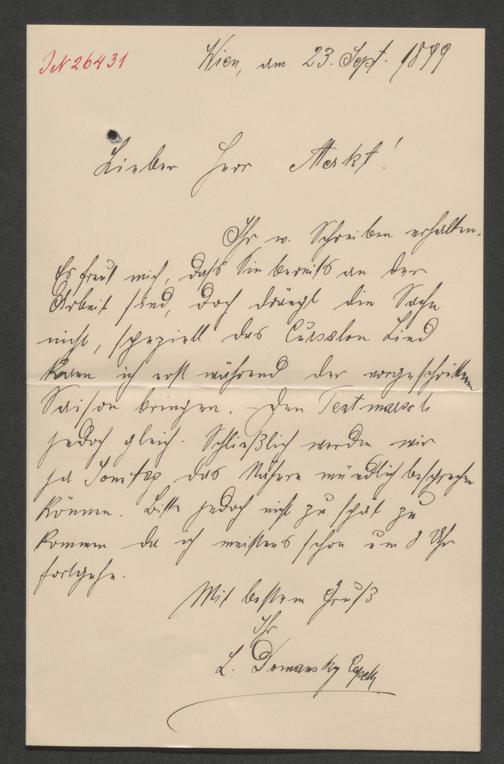 JN 26431
Wien, am 23. Sept. 1899
Lieber Herr Merkt!
Ihr w. Schreiben erhalten.
Es freut mich, daß Sie bereits an der
Arbeit sind, doch drängt die Sache
nicht, speziell das Cursalon Lied
kann ich erst während der vorgeschrittenen
Saison bringen. Den Textmarsch
jedoch gleich. Schließlich werden wir
ja Sonntag das Nähere mündlich besprechen
können. Bitte jedoch nicht zu spät zu
kommen da ich meistens schon um 8 Uhr
fortgehe.
Mit bestem Gruß
Ihr
L. Domansky